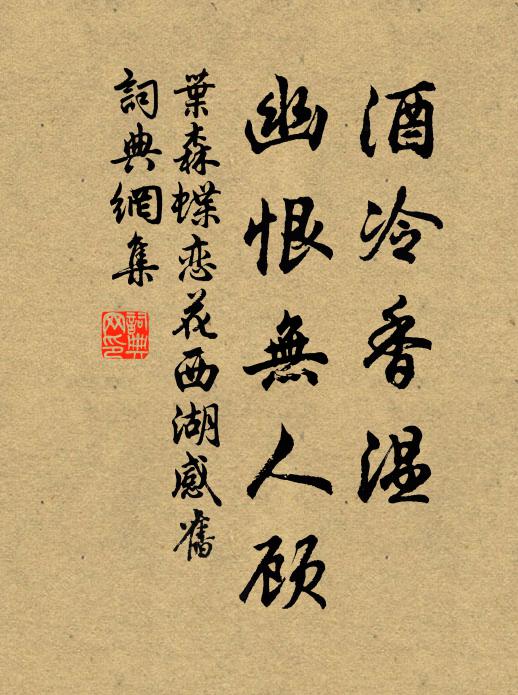 酒冷香温
幽恨無人顾
葉森蝶恋花西湖感舊
詞典網集
詞典网印